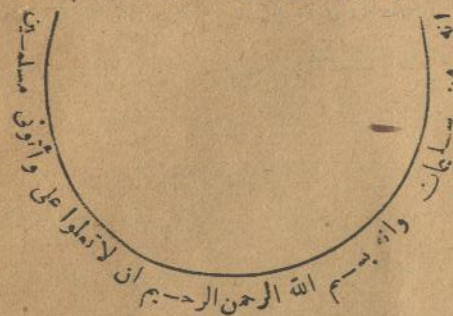 انه من سليمان وانه بسم الله الرحمن الرحيم ان لا تعلوا على وأتونى مسلمين